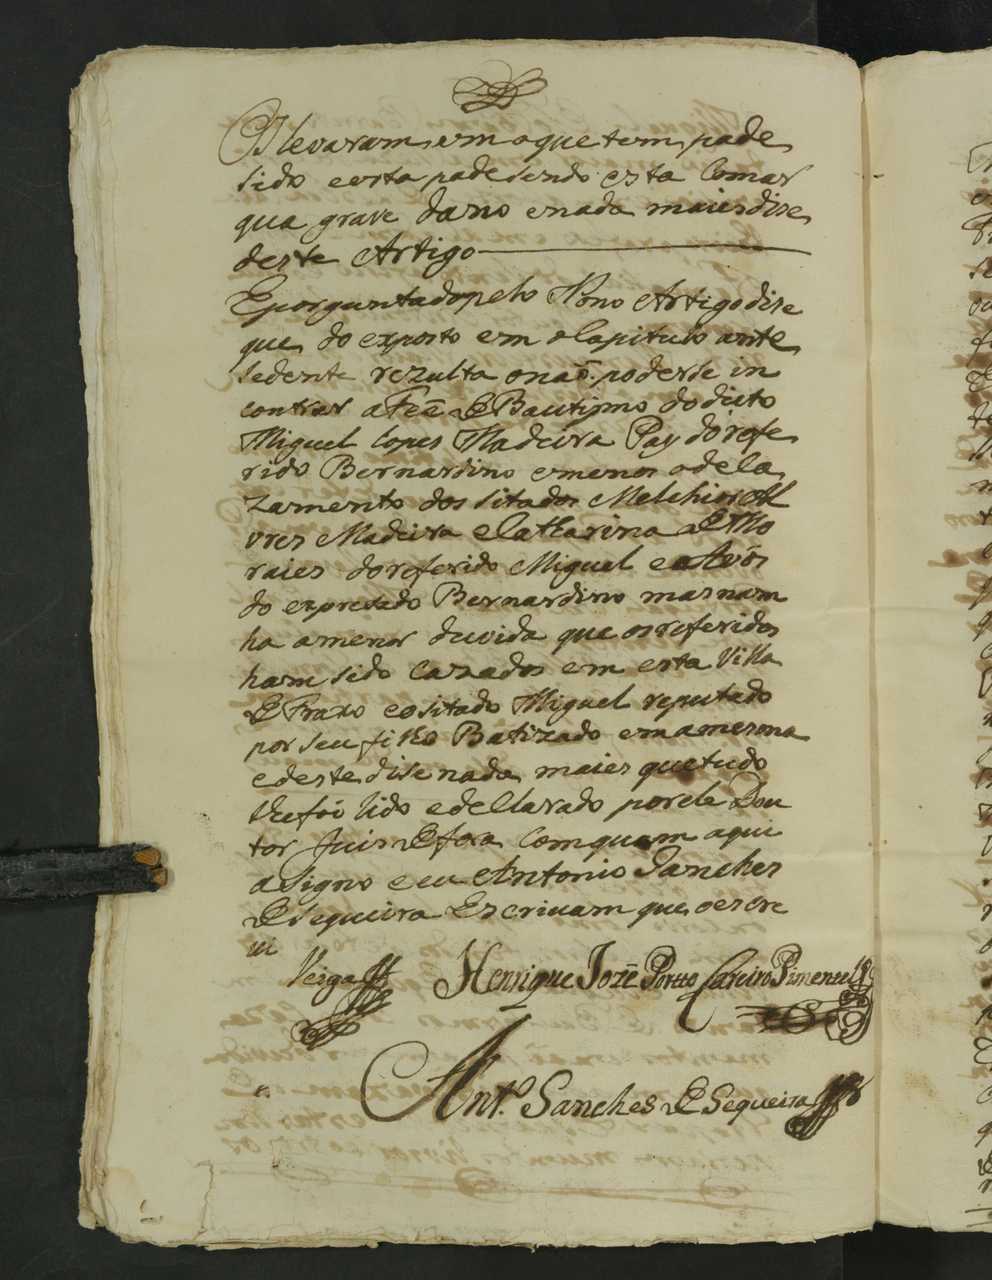 Olevaram em o que tem pade
sido e esta padesendo esta Comar
qua grave dano e nada maies dise
deste Artigo
E porguntado pelo Nono Artigo dise
que do exposto em o Capitulo ante
sedente rezulta o não poderse in
contrar a Fee de Bautismo do dicto
Miguel Lopes Madeira Pay do refe
rido Bernardino e menos o de ca
zamento dos sitados Melchior Al
vres Madeira e Catharina de Mo
raies do referido Miguel e os Avós
do expresado Bernardino mas nam
ha a menor duvida que os referidos
ham sido cazados em esta Villa
de Fraxo e o sitado Miguel reputado
por seu filho Batizado em a mesma
e deste dise nada maies que tudo
lhe foi lido e declarado por ele Dou
tor Juis de fora com quem aqui
asigno e eu Antonio Sanches
de Sequeira Escrivam que o escre
vi
Veiga Henrique Jozé Portto Careiro Pimentel
Ant.º Sanches de Sequeira